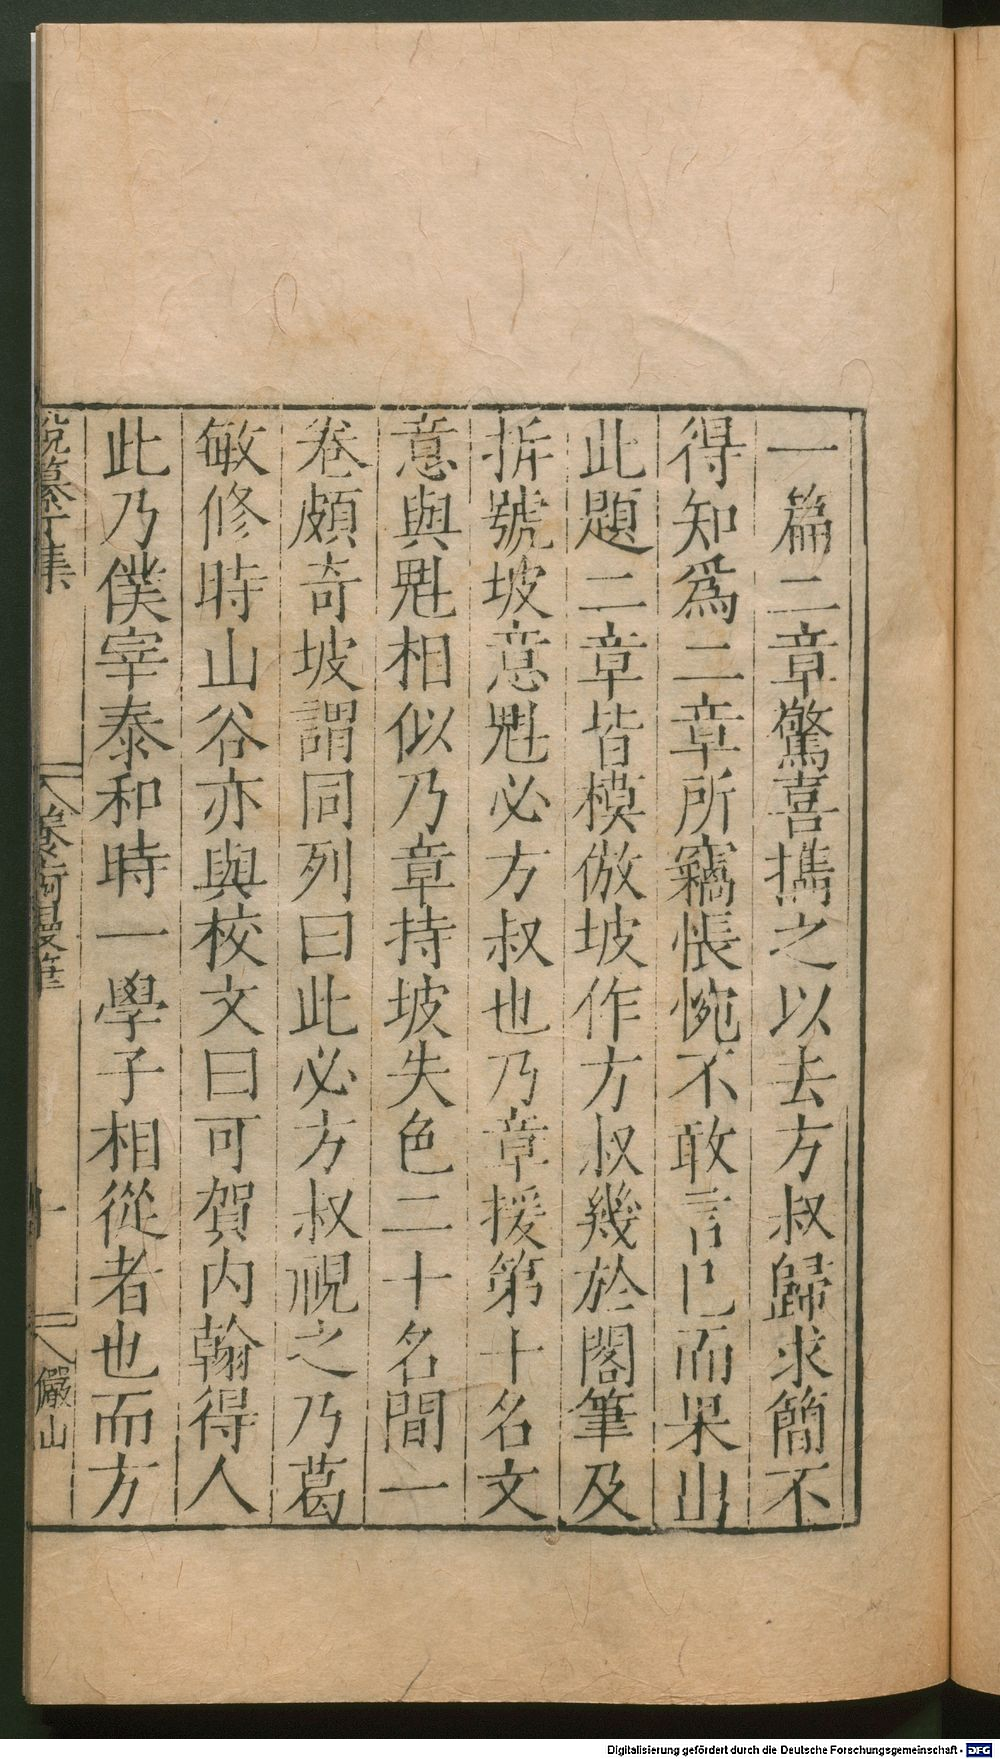 一篇二章驚喜攜之以去方叔歸求簡不
得知爲二章所竊悵惋不敢言已而果出
此題二章皆模倣坡作方叔幾於閣筆及
拆號坡意魁必方叔也乃章援第十名文
意與魁相似乃章持坡失色二十名間一
卷頗奇坡謂同列曰此必方叔視之乃葛
敏修時山谷亦與校文曰可賀内翰得人
此乃僕宰泰和時一學子相從者也而方
說纂丁集
養疴漫筆
十
儼山
Digitalisierung gefördert durch die Deutsche Forschungsgemeinschaft - DFG